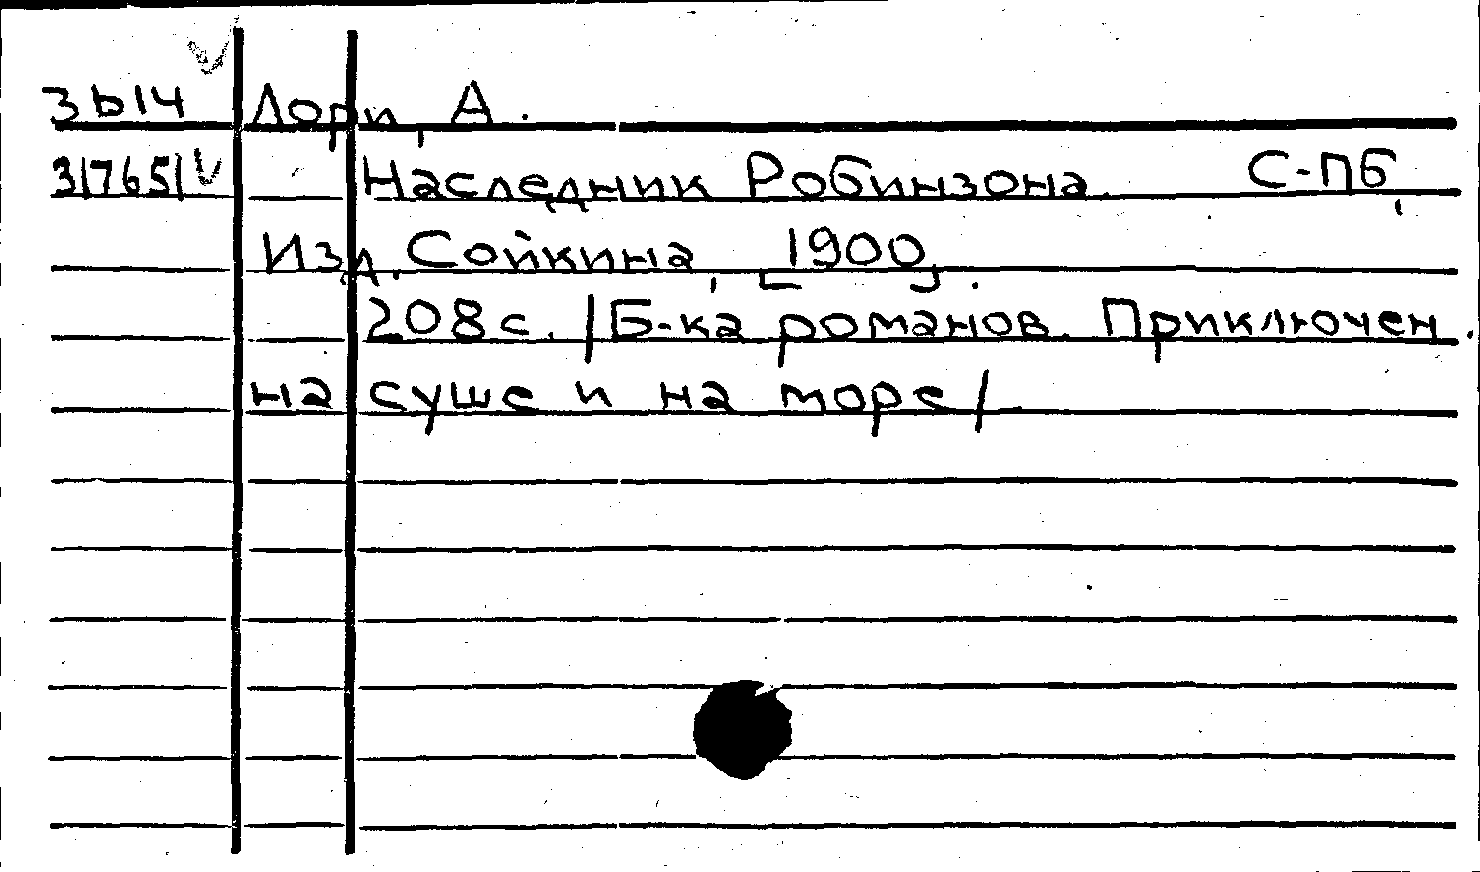 3Ы14 Лори, А.
317651 V Наследник Робинзона. С-ПБ,
Изд. Сойкина, [1900].
208 с. /Б-ка романов. Приключен.
на суше и на море/